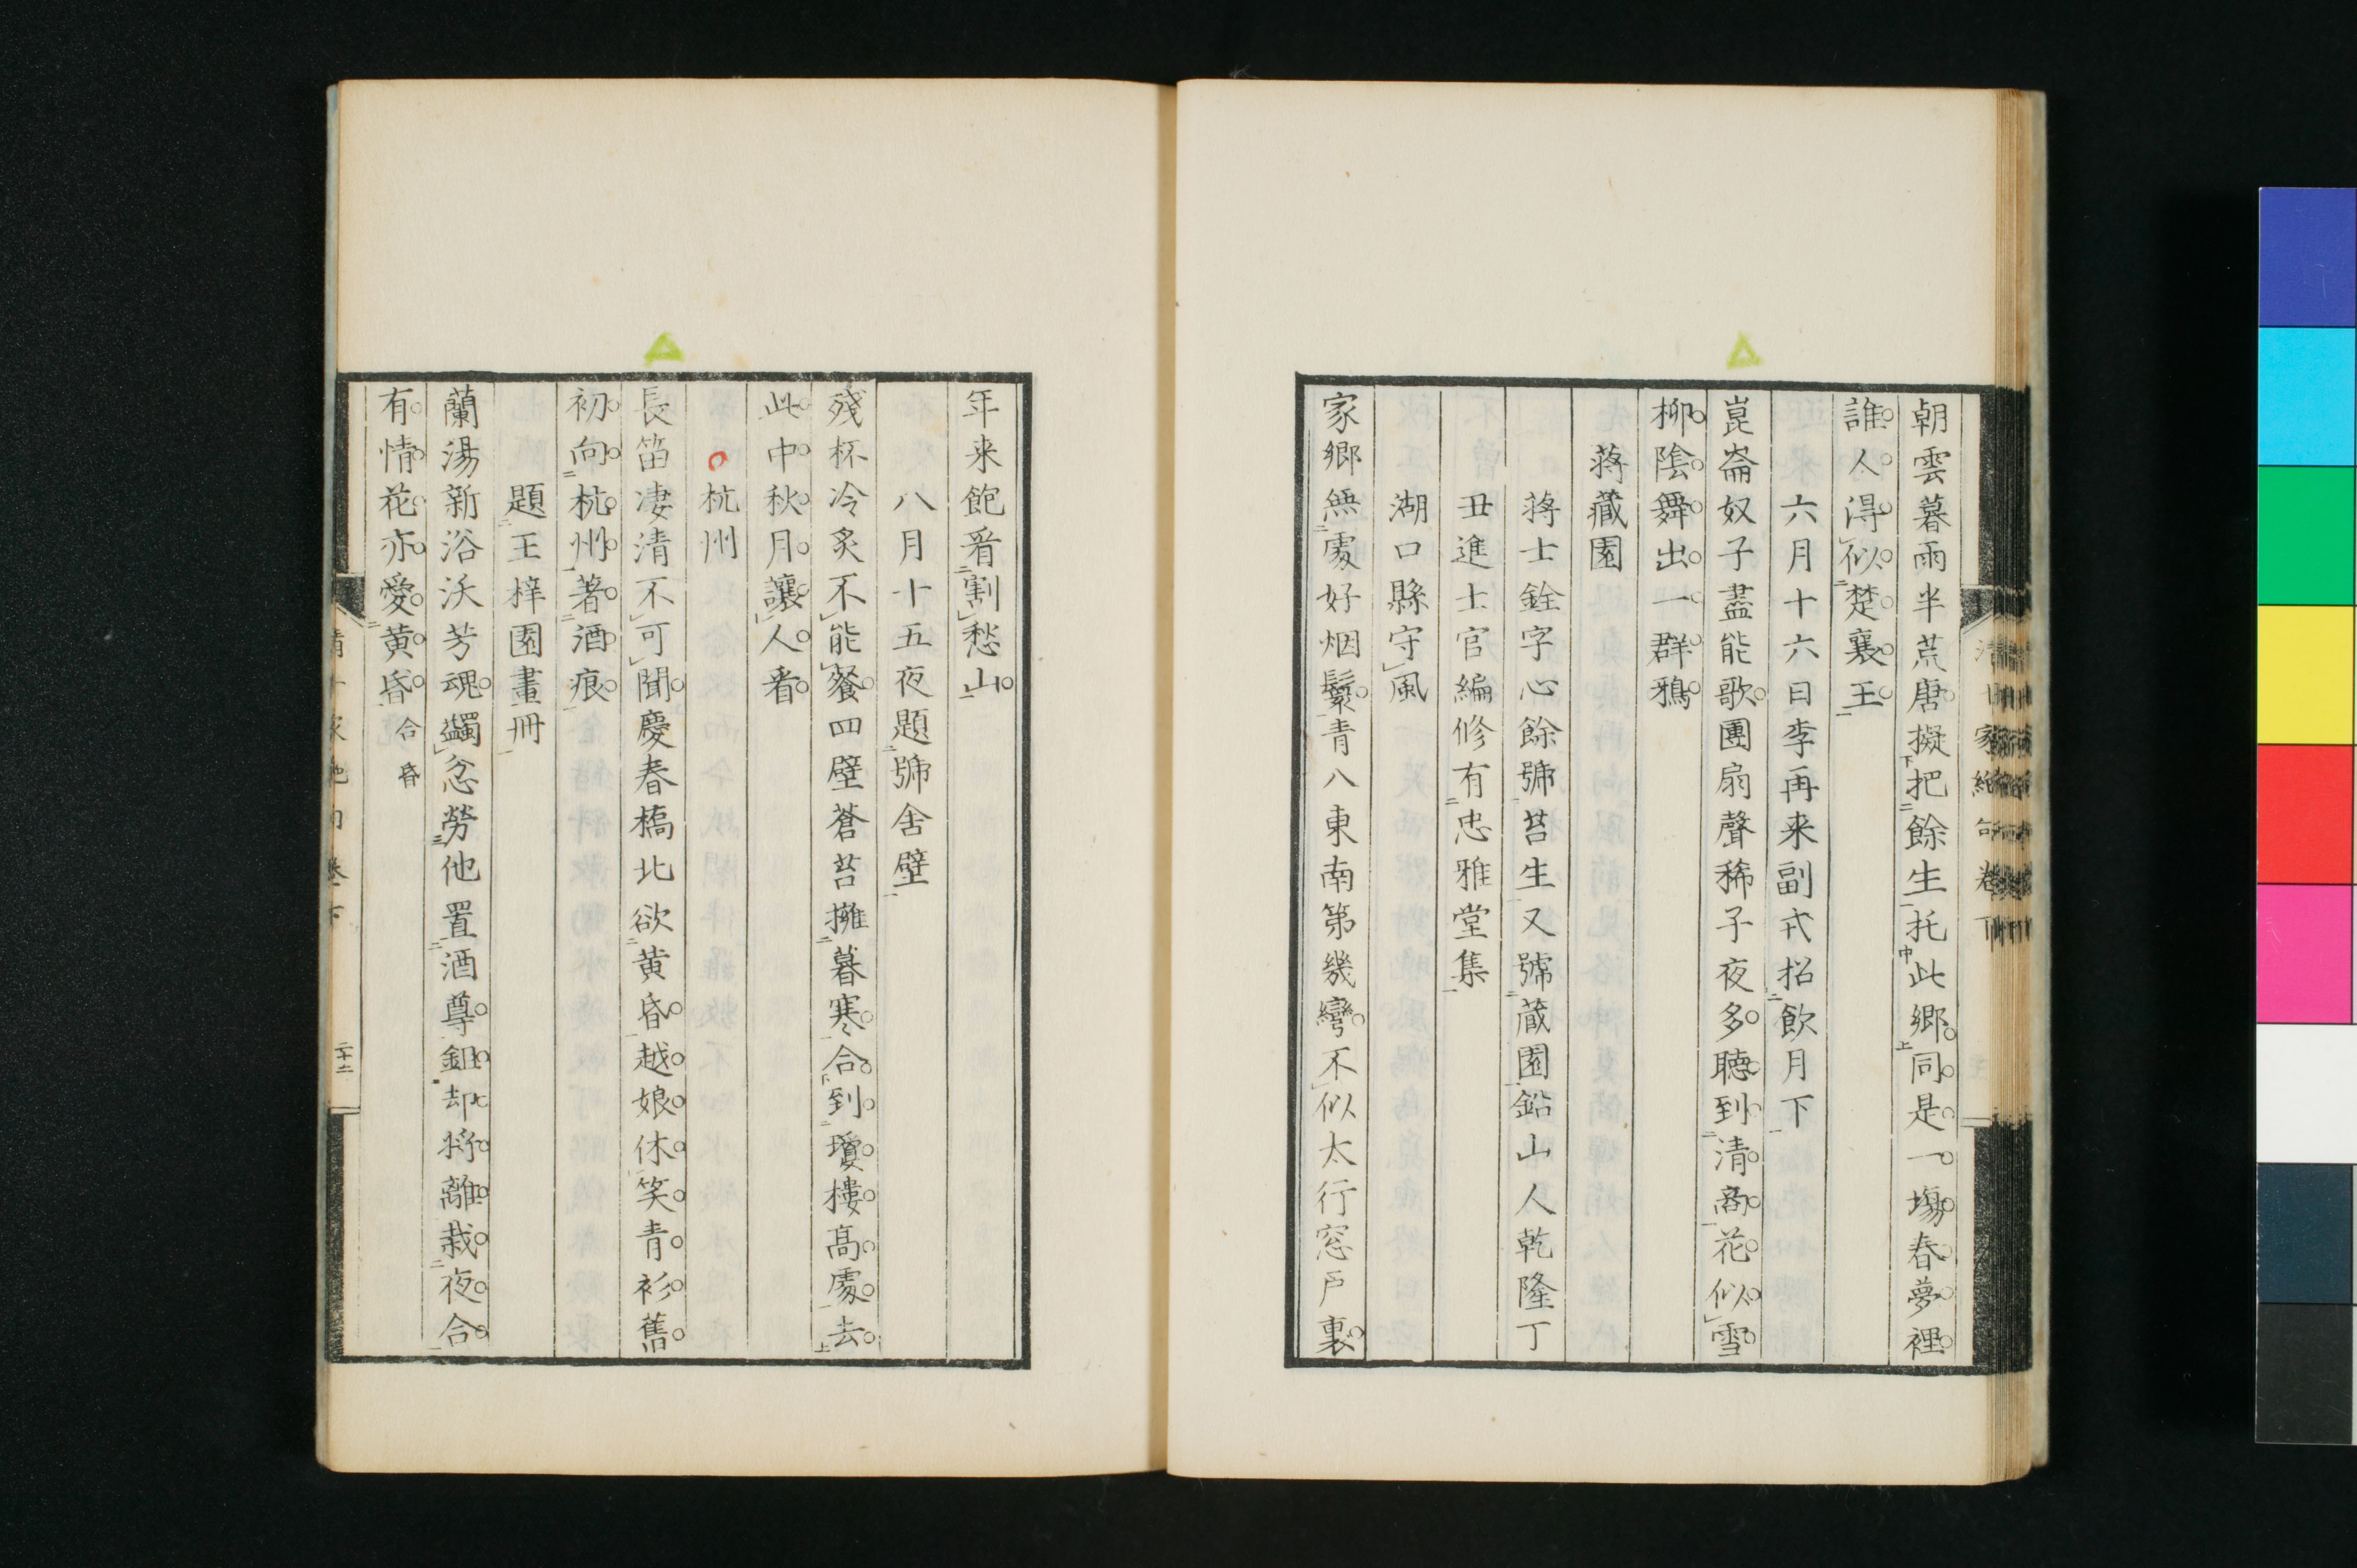 朝雲暮雨半荒唐擬把餘生托此鄉同是一場春夢裡
誰人得似楚襄王
六月十六日李再来副戎招飲月下
崑崙奴子盡能歌團扇聲稀子夜多聽到清商花似雪
柳陰舞出一群鴉
蒋藏園
蒋士銓字心餘號苕生又號藏園鉛山人乾隆丁
丑進士官編修有忠雅堂集
湖口縣守風
家鄉無處好烟鬟青八東南第幾彎不似太行窓戸裏
年来飽看割愁山
八月十五夜題號舍壁
殘杯冷炙不能餐四壁蒼苔擁暮寒合到瓊樓高處去
此中秋月讓人看
杭州
長笛凄清不可聞慶春橋北欲黄昏越娘休笑青衫舊
初向杭州著酒痕
題王梓園畫冊
蘭湯新浴沃芳魂蠲忿勞他置酒尊鉏却將離栽夜合
有情花亦愛黄昏 合昏
清十家絶句卷下
二十二